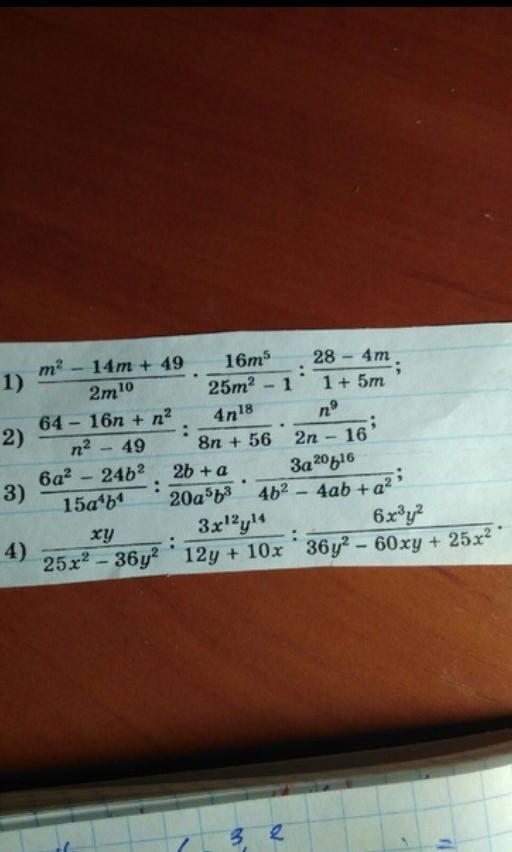 1) \frac{m^2 - 14m + 49}{2m^{10}} · \frac{16m^5}{25m^2 - 1} : \frac{28 - 4m}{1 + 5m};
2) \frac{64 - 16n + n^2}{n^2 - 49} : \frac{4n^{18}}{8n + 56} · \frac{n^9}{2n - 16};
3) \frac{6a^2 - 24b^2}{15a^4b^4} : \frac{2b + a}{20a^5b^3} · \frac{3a^{20}b^{16}}{4b^2 - 4ab + a^2};
4) \frac{xy}{25x^2 - 36y^2} : \frac{3x^{12}y^{14}}{12y + 10x} : \frac{6x^3y^2}{36y^2 - 60xy + 25x^2}.
3 2 =